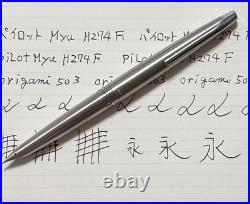 パイロット Myu H274F パイロット Myu H274F
PilotMyu H274F Pilot Myu H274F
origami 503 origami 503
永 永 永